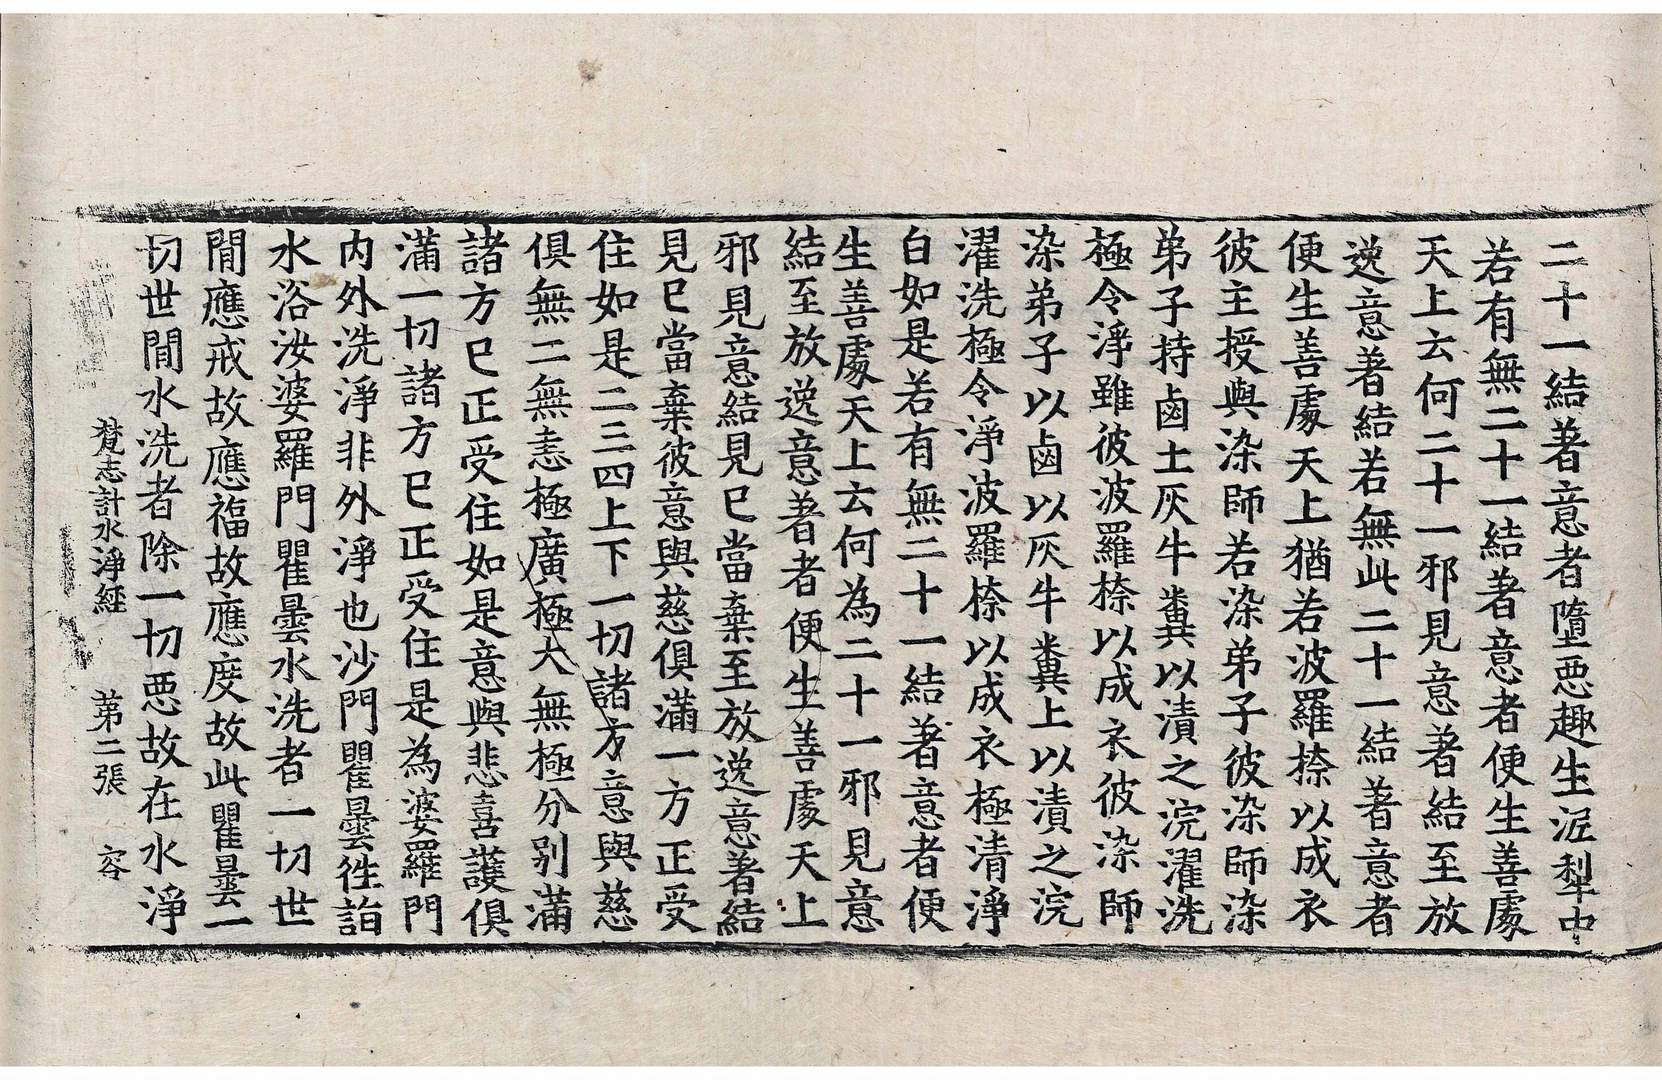 二十一結著意者墮惡趣生泥犁中
若有無二十一結著意者便生善處
天上云何二十一邪見意著結至放
逸意著結若無此二十一結著意者
便生善處天上猶若波羅㮈以成衣
彼主授與染師若染弟子彼染師染
弟子持鹵土灰牛糞以漬之浣濯洗
極令淨雖彼波羅㮈以成衣彼染師
染弟子以鹵以灰牛糞上以漬之浣
濯洗極令淨波羅㮈以成衣極清淨
白如是若有無二十一結著意者便
生善處天上云何為二十一邪見意
結至放逸意著者便生善處天上
邪見意結見已當棄至放逸意著結
見已當棄彼意與慈俱滿一方正受
住如是二三四上下一切諸方意與慈
俱無二無恚極廣極大無極分別滿
諸方已正受住如是意與悲喜護俱
滿一切諸方已正受住是為婆羅門
內外洗淨非外淨也沙門瞿曇往詣
水浴汝婆羅門瞿曇水洗者一切世
間應戒故應福故應度故此瞿曇一
切世間水洗者除一切惡故在水淨
梵志計水淨經 第二張 容